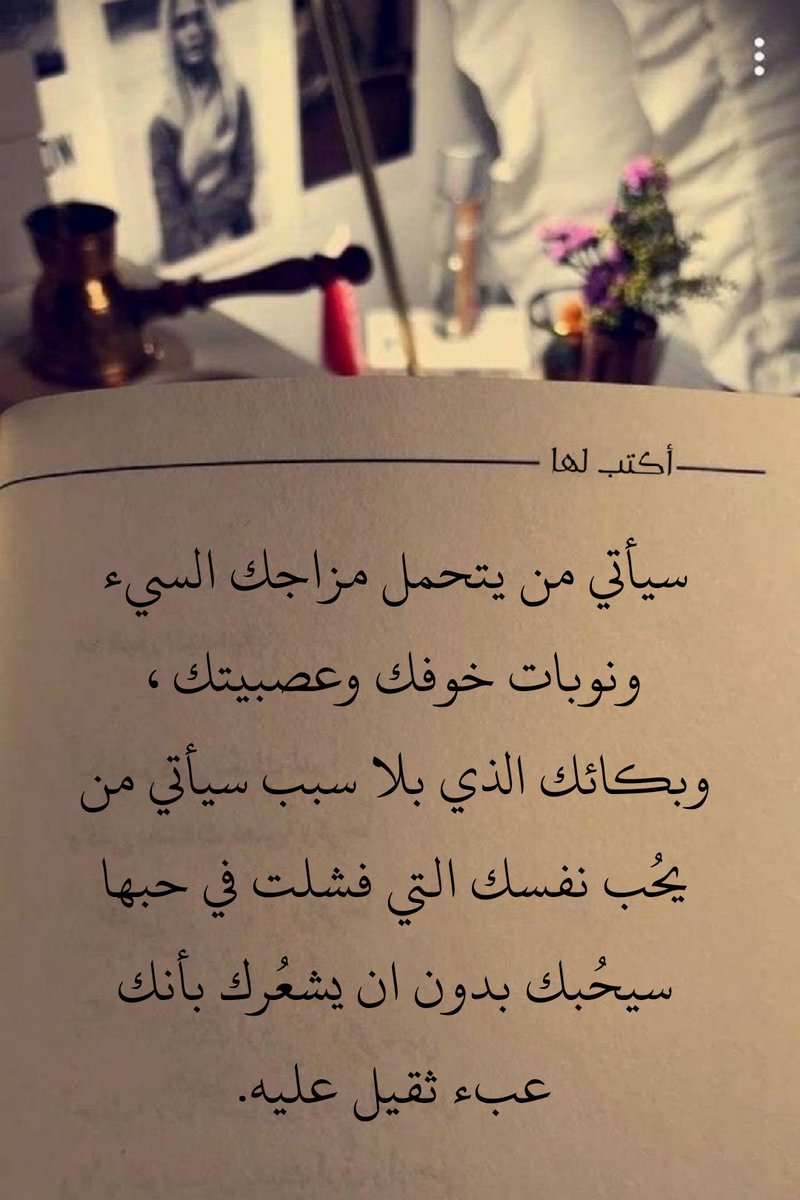 أكتب لها
سيأتي من يتحمل مزاجك السيء
ونوبات خوفك وعصبيتك ،
وبكائك الذي بلا سبب سيأتي من
يحُب نفسك التي فشلت في حبها
سيحُبك بدون ان يشعُرك بأنك
عبء ثقيل عليه.